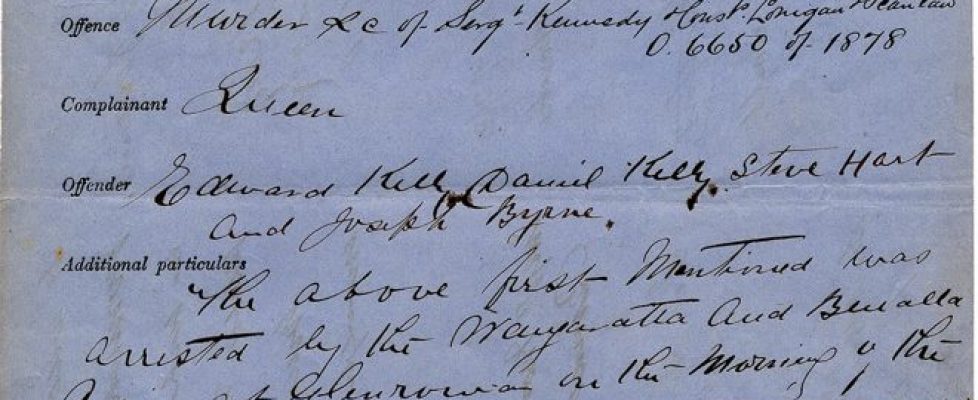 Offence Murder &c of Sergt. Kennedy Const. Lonigan & Scanlan
O. 6650 of 1878
Complainant Queen
Offender Edward Kelly, Daniel Kelly, Steve Hart
and Joseph Byrne.
Additional particulars
The above first Mentioned was
arrested by the Wangaratta and Benalla
at Glenrowan on the Morning of the